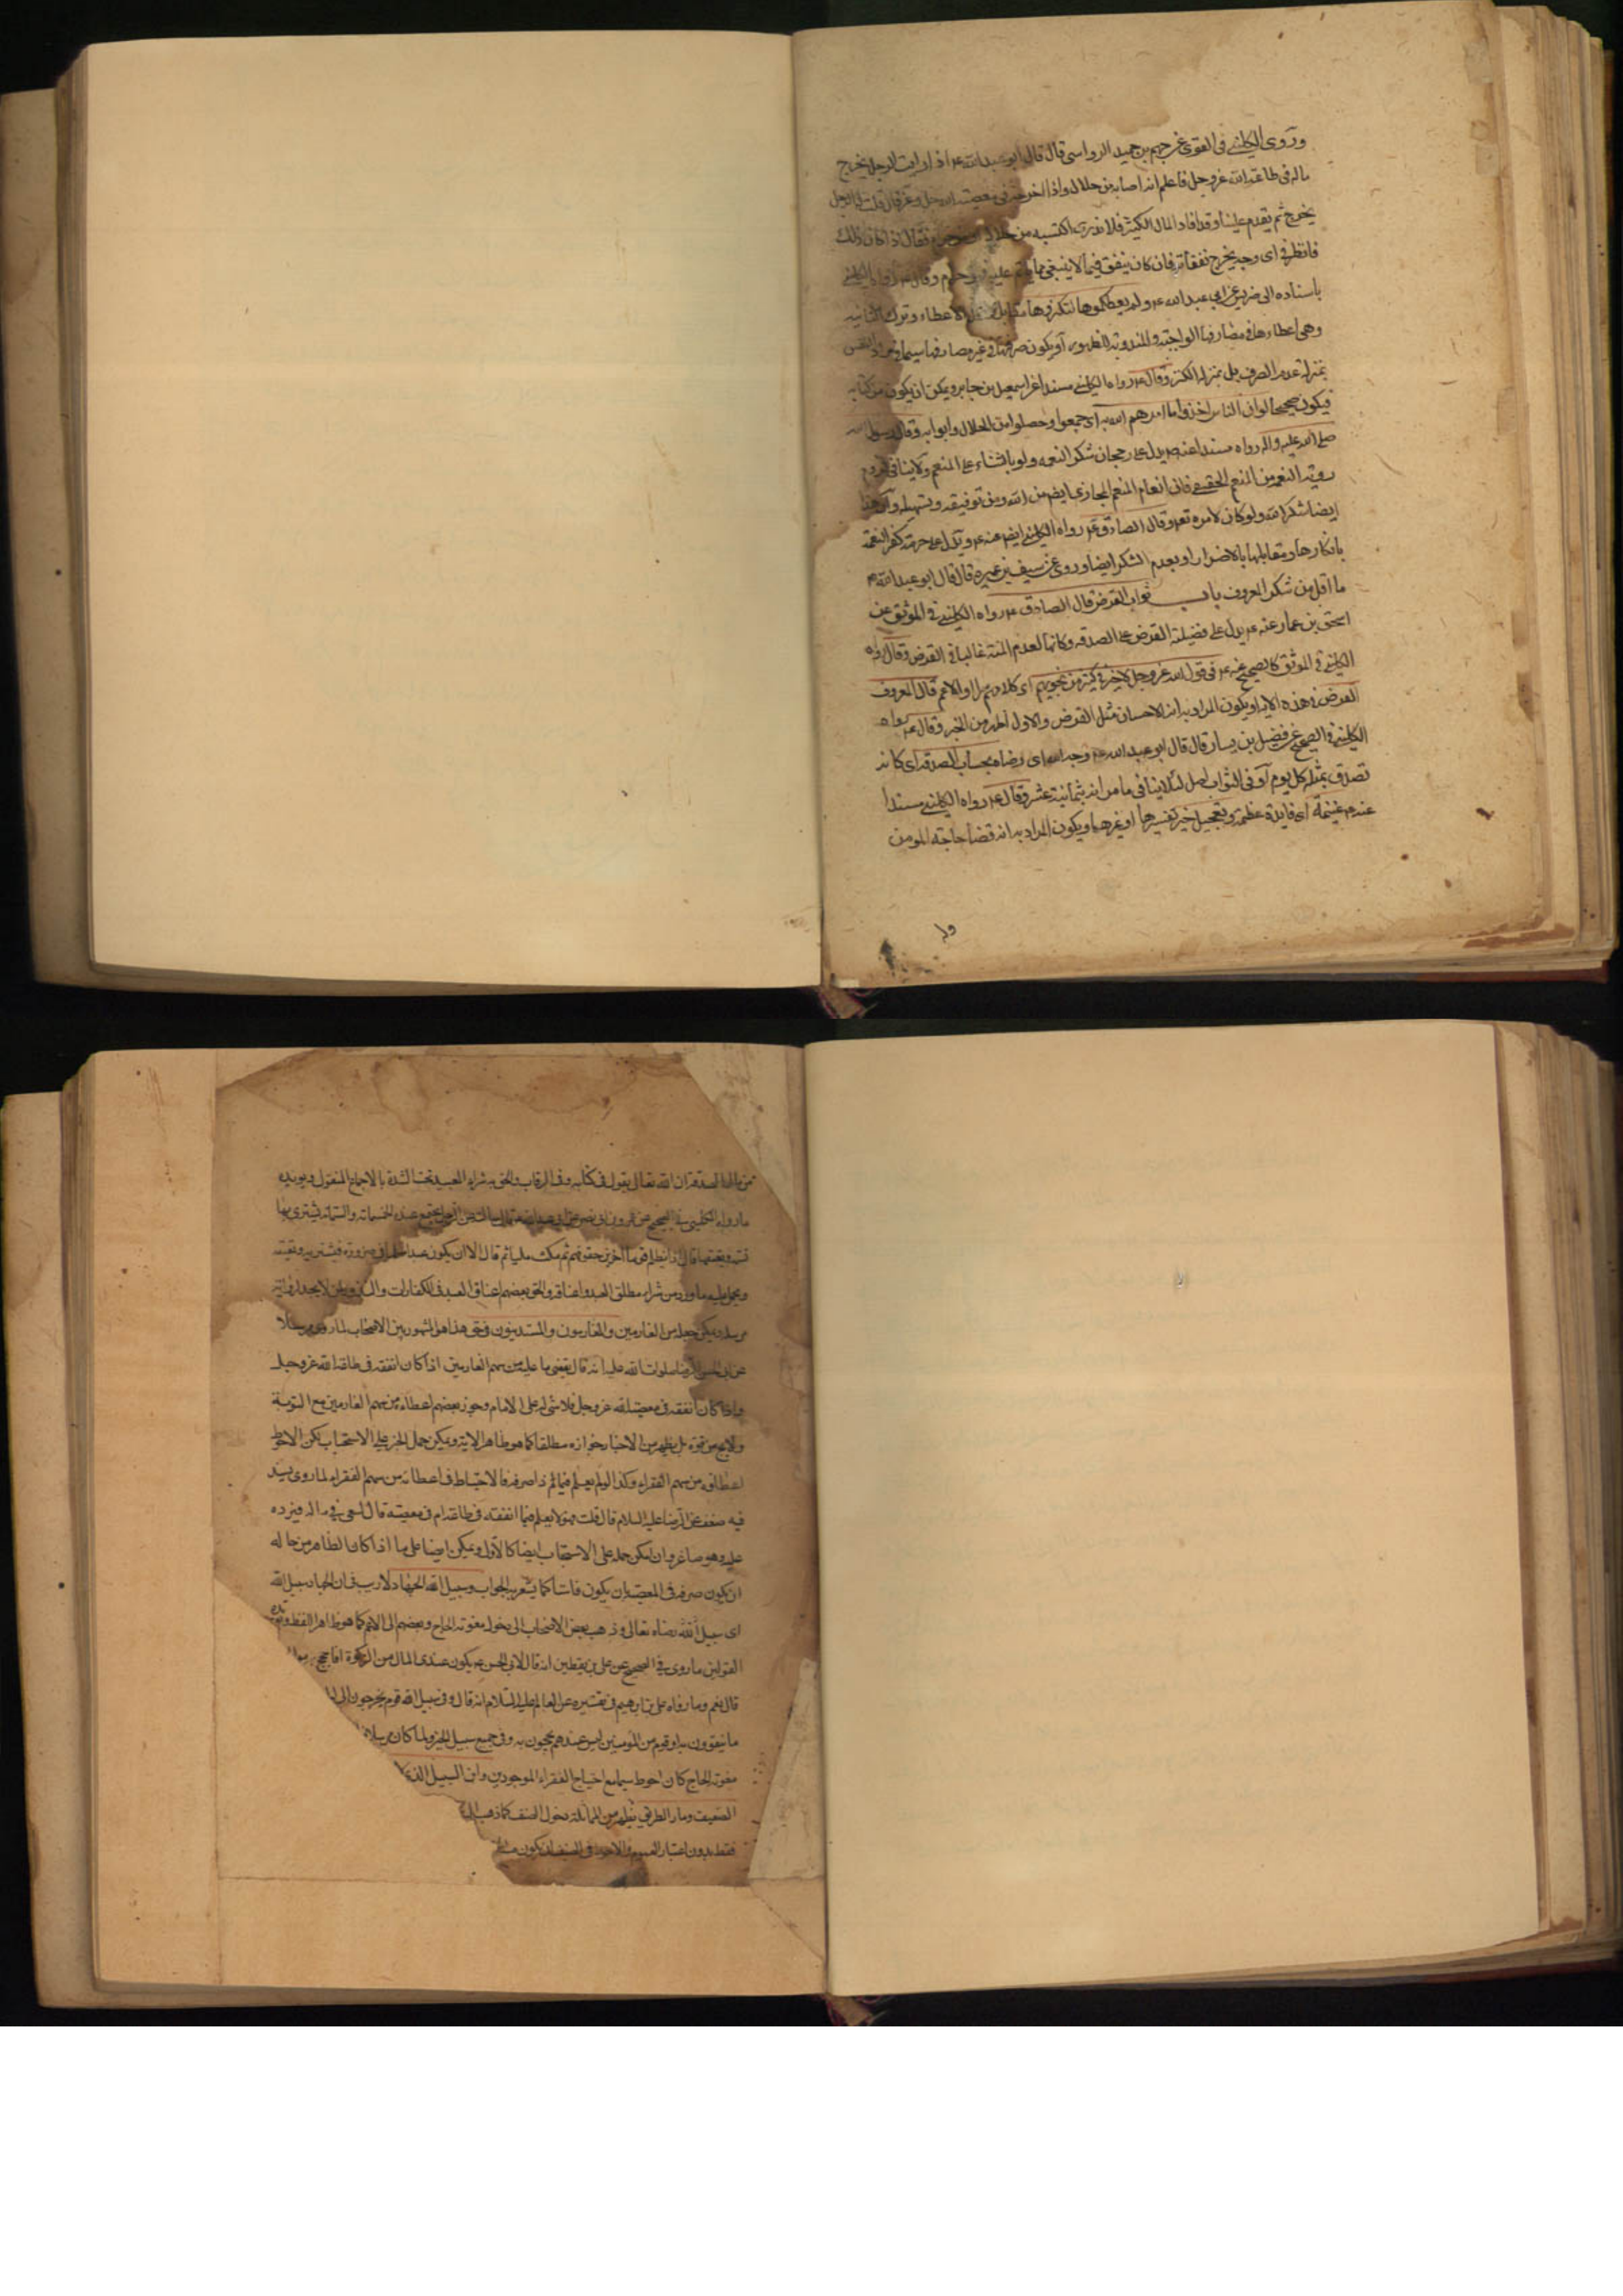 وروى الكليني في القوي عن جهم بن حميد الرواسي قال قال ابو عبد الله ع اذا رايت الرجل يخرج
ماله في طاعة الله عز وجل فاعلم انه اصابه من حلال واذا اخرجه في معصية الله عز وجل قلت له الرجل
يخرج ثم يقدم علينا وقد افاد المال الكثير فلا ندرى اكتسبه من حلال حرام فقال اذا كان ذلك
فانظر في اى وجه يخرج نفقاته فان كان ينفق فيما لا ينبغي مما ياثم عليه فهو حرام وقال ع رواه الكليني
باسناده الى ضريس عن ابي عبد الله ع ولم يعطكموها لتكنزوها الاعطاء وترك الثانية
وهي اعطاءها في مصارفها الواجبة والمندوبة للظهور او يكون صرفها في غير مصارفها سيما النفس
بمنزلة عدم الصرف بل بمنزلة الكنز وقال ع رواه الكليني مسندا عن اسمعيل بن جابر ويمكن ان يكون من كتابه
فيكون صحيحا لو ان الناس اخذوا ما امرهم الله به اى جمعوا وحصلوا من الحلال وابوابه وقال رسول الله
صلى الله عليه واله رواه مسندا عنه ص يدل على رجحان شكر النعمة ولو بالثناء على المنعم ولا ينافي
روية النعم من المنعم الحقيقي فان انعام المنعم المجازى ايض من الله ومن توفيقه وتسهيله
ايضا شكر الله ولو كان لامره تع وقال الصادق ع رواه الكليني ايض عنه ع ويدل على حرمة كفر النعمة
بانكارها ومقابلتها بالاضرار او بعدم الشكر ايضا وروى عن سيف بن عميره قال قال ابو عبد الله ع
ما اقل من شكر المعروف باب ثواب القرض قال الصادق ع رواه الكليني في الموثق عن
اسحق بن عمار عنه ع يدل على فضيلة القرض على الصدقه وكانها لعدم المنة غالبا في القرض وقال رواه
الكليني في الموثق كالصحيح عنه ع في قول الله عز وجل لا خير في كثير من نجويهم اى كلامهم سرا او الاعم قال المعروف
القرض في هذه الاية او يكون المراد به انه الاحسان مثل القرض والاول اظهر من الخبر وقال ع رواه
الكليني في الصحيح عن فضيل بن يسار قال قال ابو عبد الله ع وجه الله اى رضاه بحساب الصدقة اى كانه
تصدق بمثله كل يوم او في الثواب لئلا ينافي ما مر انه بثمانية عشر وقال ع رواه الكليني مسندا
عنه ع غنيمة اى فايدة عظيمة وتعجيل خير تفسيرها او غيرها ويكون المراد به انه قضا حاجة المومن
الصدقة ان الله تعالى يقول في كتابه وفي الرقاب والحق به شراء العبيد تحت الشدة بالاجماع المنقول ويويده
ما رواه الكليني في الصحيح عن عمرو بن ابي نصر عن ابي عبد الله قال سالته عن الرجل يجتمع عنده الخمسمائة والستمائة يشترى بها
نسمة ويعتقها قال اذا يظلم قوما اخرين حقوقهم ثم مكث مليا ثم قال الا ان يكون عبدا مسلما في ضرورة فيشتريه ويعتقه
ويحمل عليه ما ورد من شراء مطلق العبد واعتاقه والحق بعضهم اعتاق العبد في الكفارات لمن لا يجد لرواية
مرسلة ويمكن جعله من الغارمين والغارمون والمستدينون في حق هذا هو المشهور بين الاصحاب لما روى مرسلا
عن ابي الحسن الرضا صلوات الله عليه انه قال يقضى ما عليه من سهم الغارمين اذا كان انفقه في طاعة الله عز وجل
واذا كان انفقه في معصية الله عز وجل فلا شى له على الامام وجوز بعضهم اعطاءه من سهم الغارمين مع التوبة
ولا يخ من قوة بل يظهر من الاخبار جوازه مطلقا كما هو ظاهر الاية ويمكن حمل الخبر على الاستحباب لكن الاحوط
اعطاؤه من سهم الفقراء وكذا لو لم يعلم فيما ذا صرفه فالاحتياط في اعطائه من سهم الفقراء لما روى بسند
فيه ضعف عن الرضا عليه السلام قال قلت فهو لا يعلم فيما انفقه في طاعة ام في معصية قال يسعى في ماله فيرده
عليه وهو صاغر وان امكن حمله على الاستحباب ايضا كالاول ويمكن ايضا على ما اذا كان الظاهر من حاله
ان يكون صرفه في المعصية بان يكون فاسقا كما يشعر به الجواب وسبيل الله الجهاد لا ريب في ان الجهاد سبيل الله
اى سبيل الله رضاه تعالى وذهب بعض الاصحاب الى دخول معونة الحاج وبعضهم الى الاعم كما هو ظاهر اللفظ ويويده
القولين ما روى في الصحيح عن علي بن يقطين انه قال لابي الحسن ع يكون عندى المال من الزكوة افاحج به
قال نعم وما رواه علي بن ابرهيم في تفسيره عن العالم عليه السلام انه قال وفي سبيل الله قوم يخرجون الى
ما يتقوون به او قوم من المومنين ليس عندهم يحجون به وفي جميع سبيل الخير ولما كان مرسلا
معونة الحاج كان احوط سيما مع احتياج الفقراء الموجودين وابن السبيل الذى
الضعيف ومار الطريق يظهر من المقابلة دخول الضيف كما ذهب
فقط بدون اعتبار في الضيف ان يكون